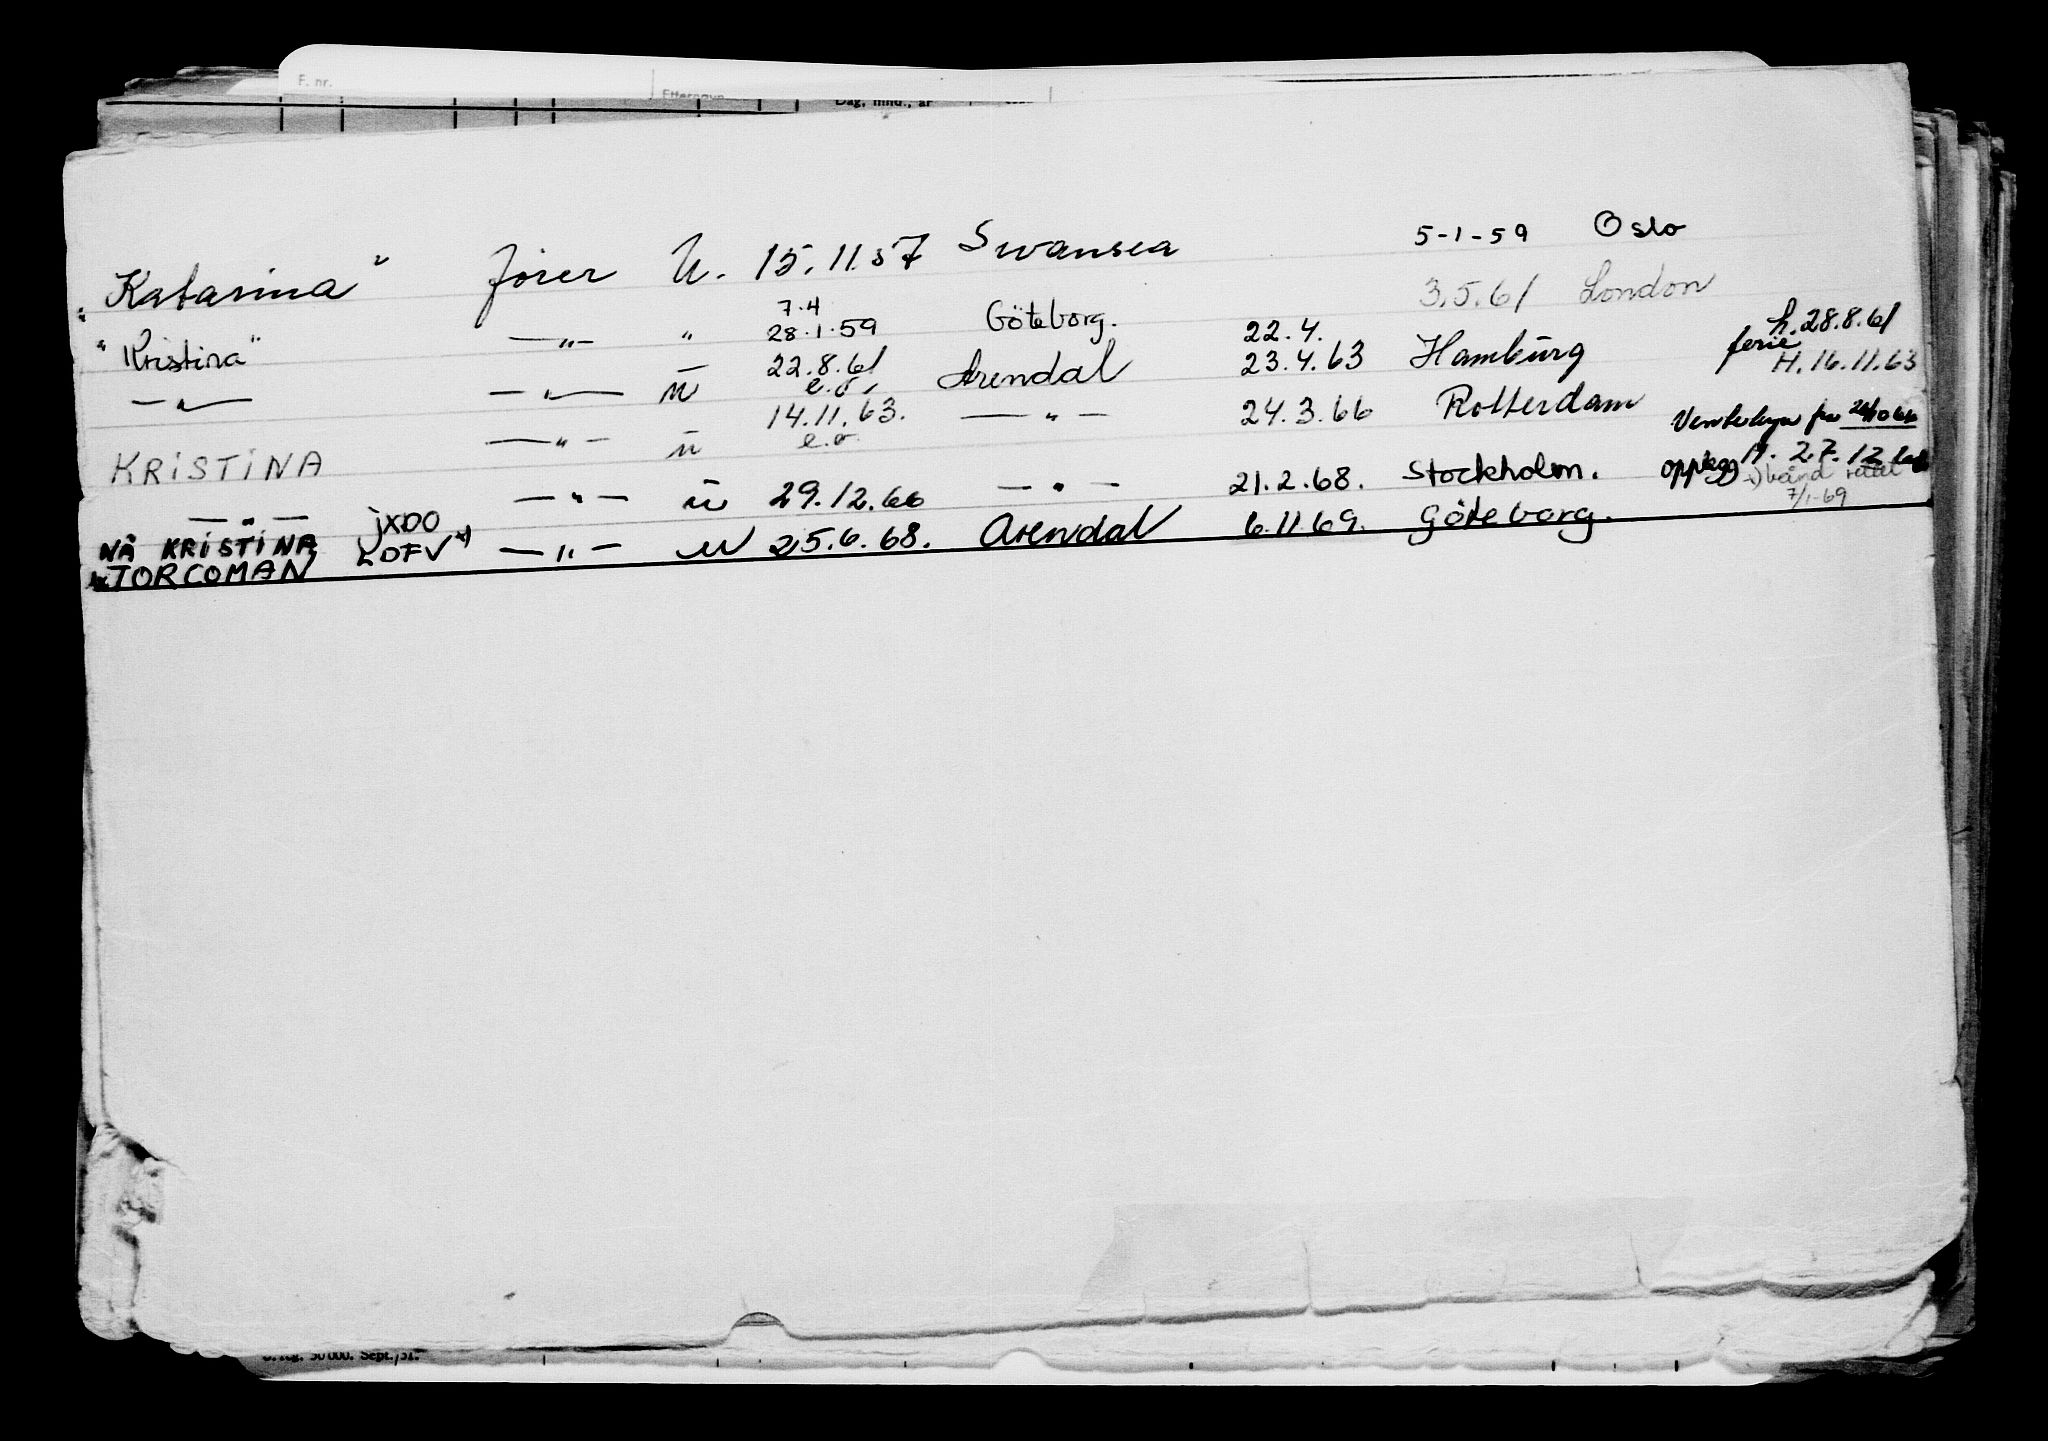 F. nr.
Etternavn
Dag, mnd., år
"Katarina" fører U. 15.11.57 Swansea 5-1-59 Oslo
"Kristina" —"— " 7.4 28.1.59 Göteborg. 3.5.61 London
—"— —"— ū 22.8.61 e.o. Arendal 22.4. 23.4.63 Hamburg ferie h. 28.8.61 H. 16.11.63
KRISTINA —"— ū 14.11.63. e.o. —"— 24.3.66 Rotterdam
—"— —"— ū 29.12.66 —"— 21.2.68. Stockholm. opplegg H. 27.12
NÅ KRISTINA JXDO 7/1-69
TORCOMAN LDFV x) —"— U 25.6.68. Arendal 6.11.69. Göteborg.
50 000. Sept. 51.